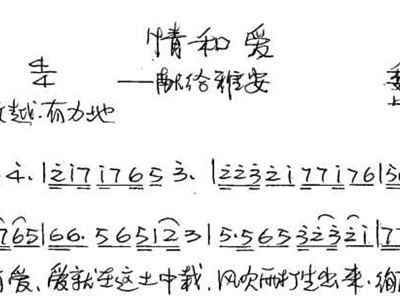 情和爱
4/4
——献给雅安
越·有力地
4. | 2 1 7 1 7 6 5 3. | 2 2 3 2 1 7 7 1 7 6 | 5
7 6 5 | 6 6. 5 6 5 1 2 3 | 5. 5 6 5 3 2 3 2 1 | 7 7
爱、爱就在这土中栽、风吹雨打生出来、